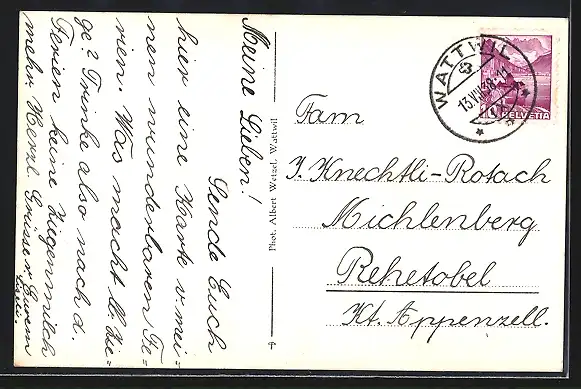 Meine Lieben!
Sende Euch
hier eine Karte v. mei=
nen wunderbaren Fe=
rien. Was macht lb. Zie=
ge? Trinke also nach d.
Ferien keine Ziegenmilch
mehr. Herzl. Grüsse v. Eurem
Phot. Albert Wetzel, Wattwil
WATTWIL
13.VII.38-11
HELVETIA
Fam
J. Knechtli-Rotach
Michlenberg
Rehetobel
Kt. Appenzell.